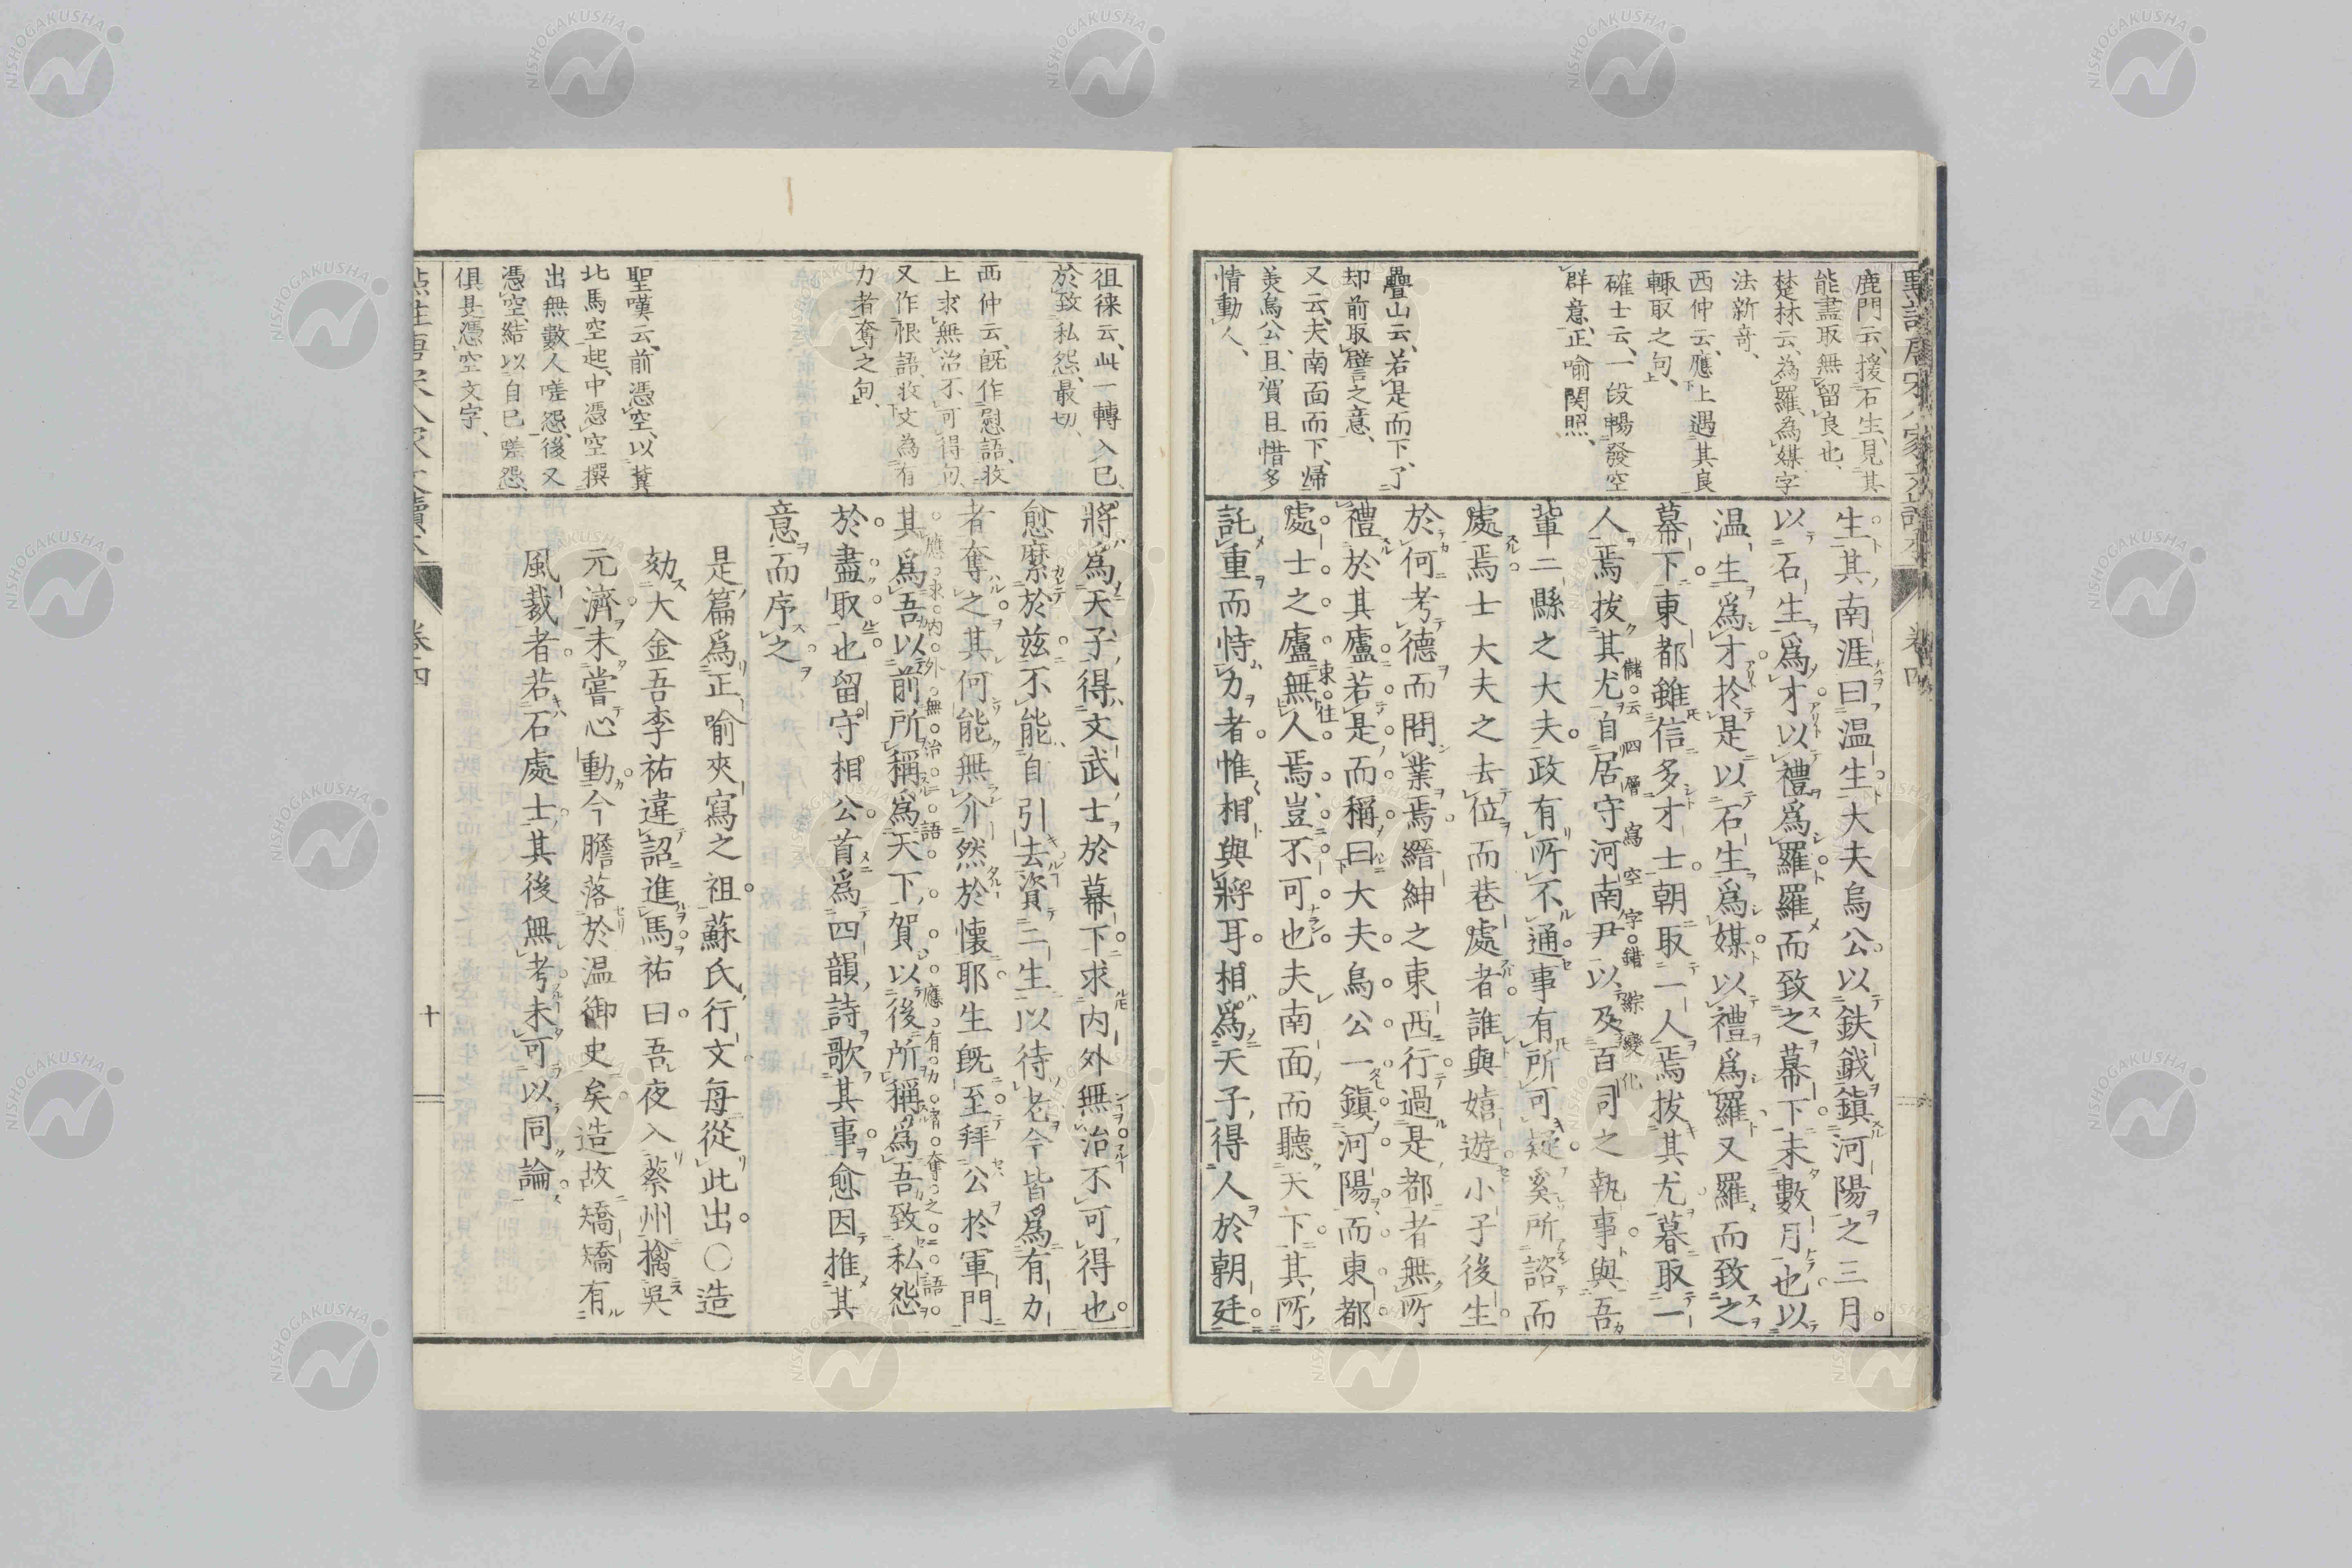 鹿門云、援石生、見其
能盡取無留良也、
楚林云、為羅、為媒字
法新竒、
西仲云、應上遇其良
輙取之句、
確士云、一段暢發空
群意、正喻関照、
疊山云、若是而下、了
却前取譬言之意、
又云、夫南面而下、歸
美烏公、且賀且惜多
情動人、
生其南涯曰温生大夫烏公以鈇鉞鎮河陽之三月
以石生爲才以禮爲羅羅而致之幕下未數月也以
温生爲才於是以石生爲媒以禮爲羅又羅而致之
幕下東都雖信多才士朝取一人焉拔其尤暮取一
人焉拔其尤自居守河南尹以及百司之執事與吾
儲云四層寫空字錯綜變化
輩二縣之大夫政有所不通事有所可疑奚所諮而
處焉士大夫之去位而巷處者誰與嬉遊小子後生
於何考德而問業焉縉紳之東西行過是都者無所
禮於其廬若是而稱曰大夫烏公一鎮河陽而東都
處士之廬無人焉豈不可也夫南面而聽天下其所
託重而恃力者惟相與將耳相爲天子得人於朝廷
卷四
徂徠云、此一轉入己、
於致私怨、最切、
西仲云、旣作慰語、收
上求無治不可得句、
又作恨語、收文為有
力者奪之句、
聖嘆云、前憑空、以冀
北馬空起、中憑空撰
出無數人嗟怨、後又
憑空、結以自已嗟怨、
俱是憑空文字、
將爲天子得文武士於幕下求内外無治不可得也
愈縻於茲不能自引去資二生以待老今皆爲有力
者奪之其何能無介然於懷耶生旣至拜公於軍門
應求内外無治語應有力者奪之語
其爲吾以前所稱爲天下賀以後所稱爲吾致私怨
於盡取也留守相公首爲四韻詩歌其事愈因推其
意而序之
是篇爲正喻夾寫之祖蘇氏行文每從此出〇造
劾大金吾李祐違詔進馬祐曰吾夜入蔡州擒吳
元濟未嘗心動今膽落於温御史矣造故矯矯有
風裁者若石處士其後無考未可以同論
十
NISHOGAKUSHA